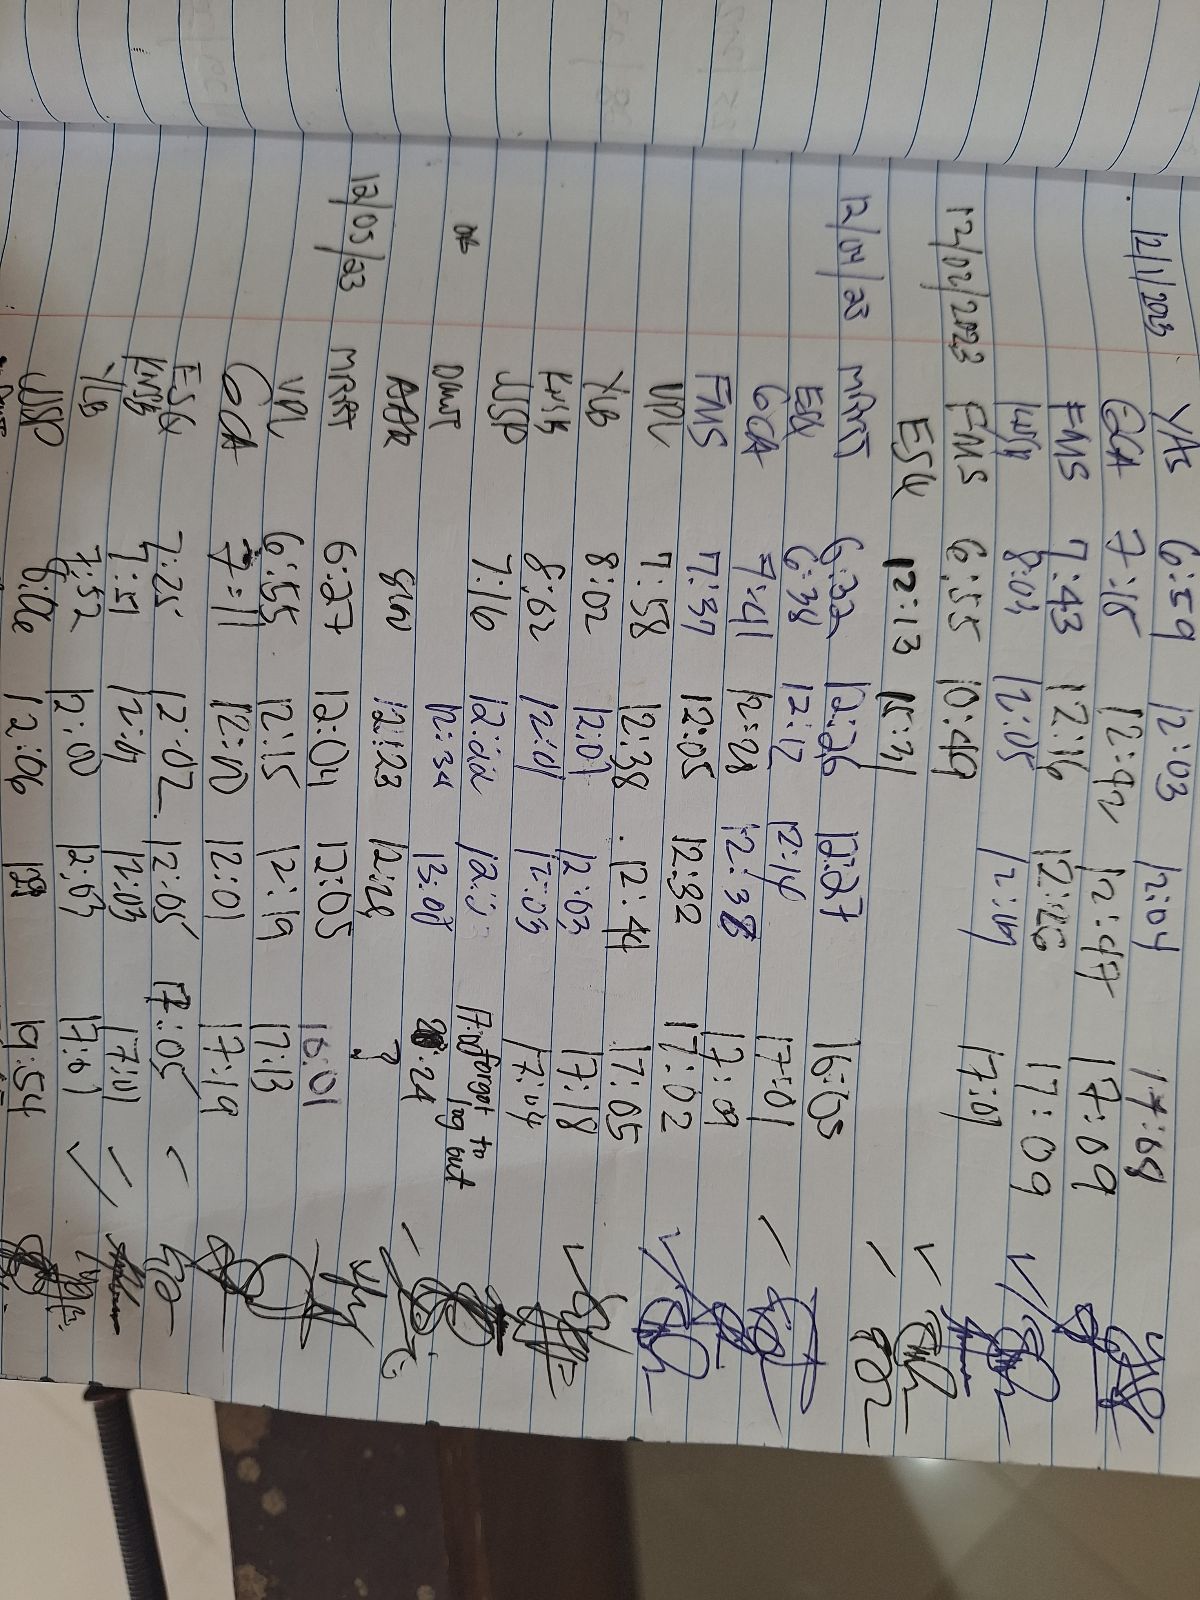 12/1/2023 YAS 6:59 12:03 12:04 17:08
GCA 7:15 12:42 12:47 17:09
FMS 7:43 12:16 12:26 17:09
KNSB 8:03 12:05 12:19 17:09
12/02/2023 FMS 6:55 10:49
ESG 12:13 15:31
12/04/23 MRAT 6:32 12:26 12:27 16:03
ESG 6:38 12:12 12:14 17:01
GCA 7:41 12:28 12:38 17:09
FMS 7:37 12:05 12:32 17:02
VPL 7:58 12:38 12:44 17:05
YLB 8:02 12:01 12:03 17:18
KNSB 8:02 12:01 12:03 17:04
JJSP 7:16 17:00 forgot to log out
DMNT 12:34 13:00 :24
AAR 12:23 12:28 ?
12/05/23 MRAT 6:27 12:04 12:05 16:01
VPL 6:55 12:15 12:19 17:13
GCA 7:11 12:00 12:01 17:19
ESG 7:25 12:02 12:05 17:05
KNSB 7:51 12:01 12:03 17:01
YLB 7:52 12:00 12:03 17:01
JJSP 12:06 19:54